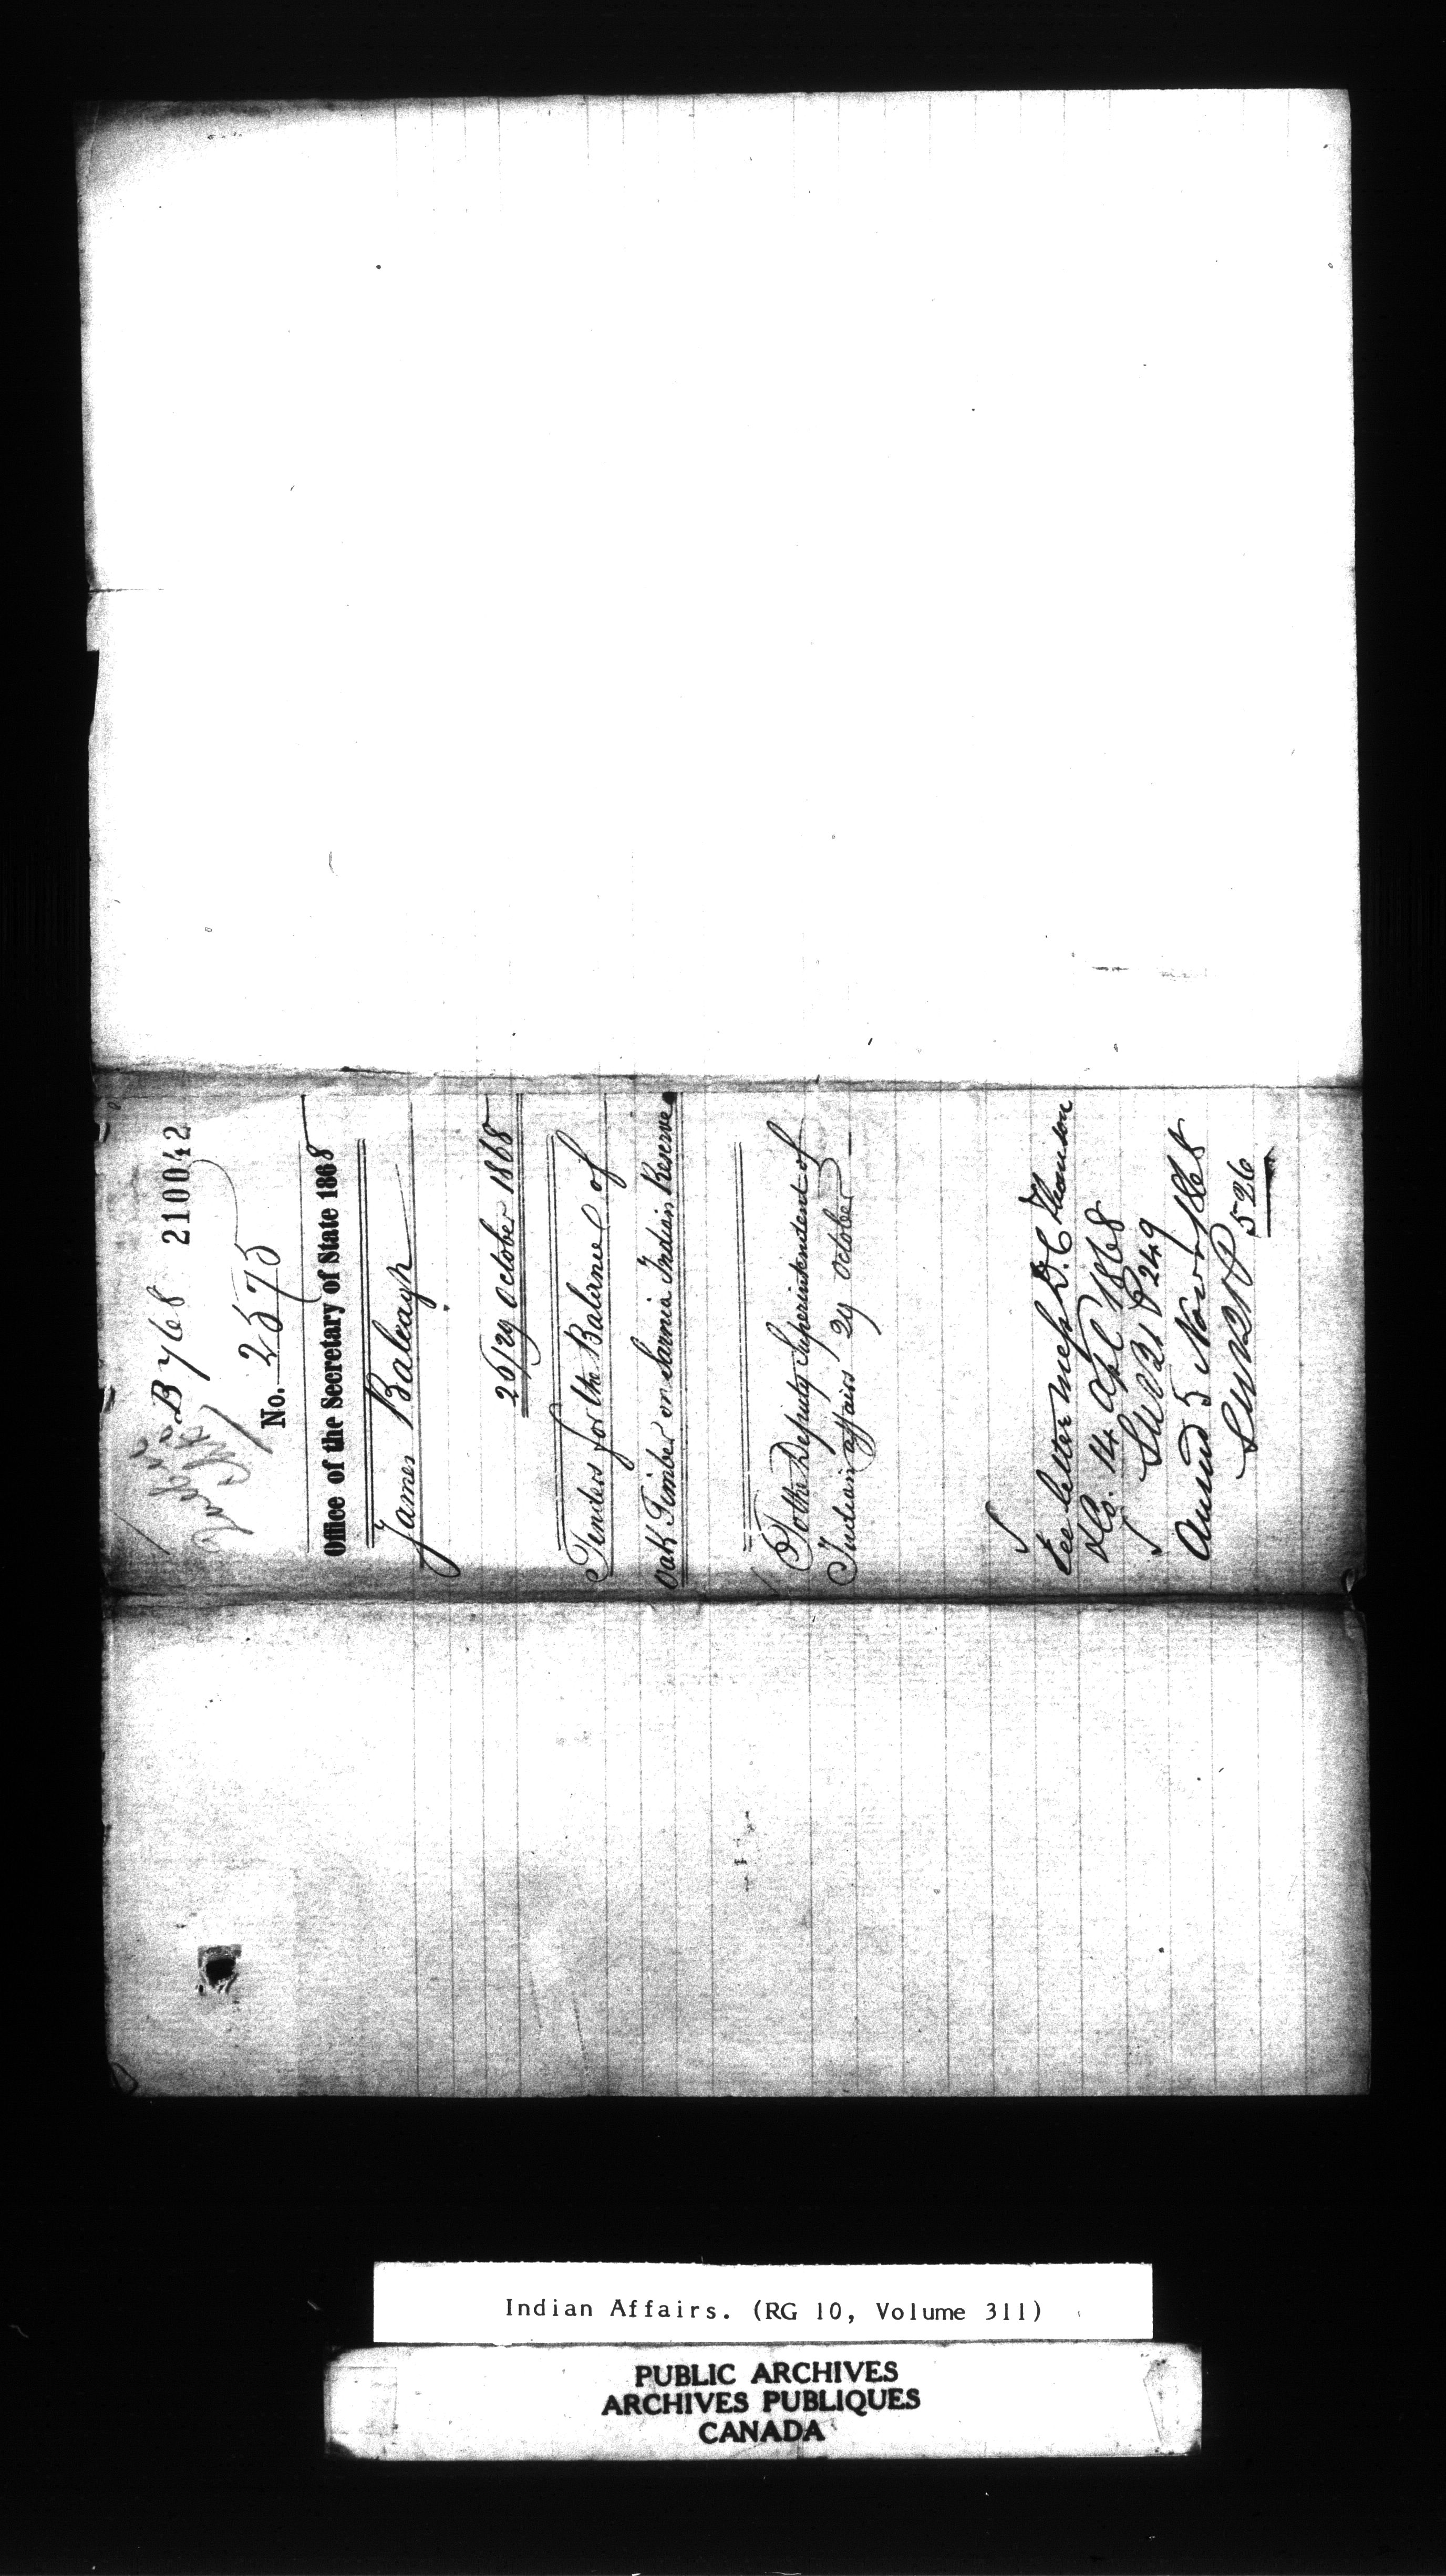 210042
B 768
No. 2575
Office of the Secretary of State 1868
James Baleagh
26/29 October 1868
Tenders for the Balance of
Oak Timber on Sarnia Indian Reserve
To the Deputy Superintendent of
Indian Affairs 29 October
See letter to Messrs D. C. Thomson
& Co. 14 Apl 1868
P 249
Ansd 5 Nov 1868
526
Indian Affairs. (RG 10, Volume 311)
PUBLIC ARCHIVES
ARCHIVES PUBLIQUES
CANADA